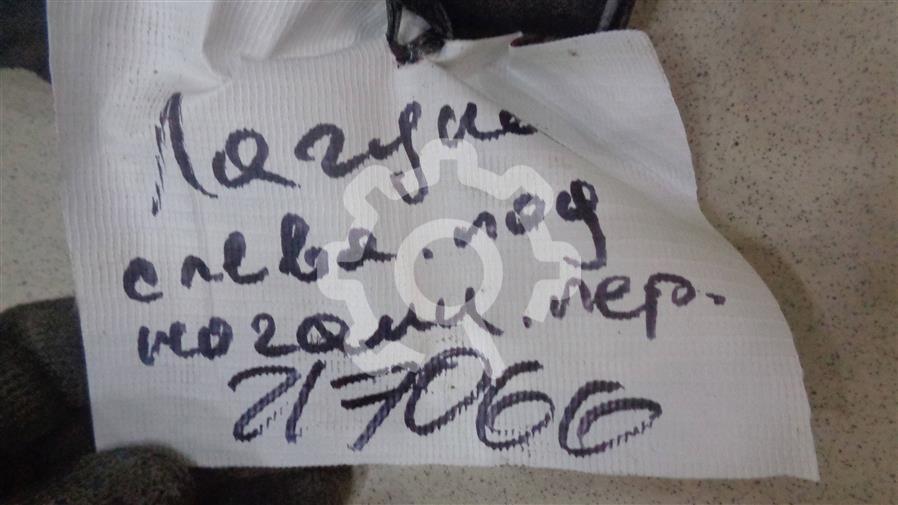 Лагуна
слева. под
ногами. пер.
217066